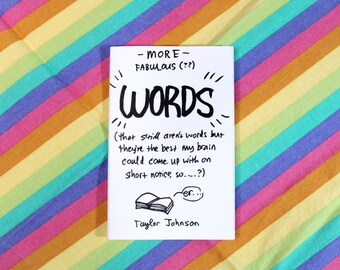 - MORE -
FABULOUS (??)
WORDS
(that still aren't words but
they're the best my brain
could come up with on
short notice, so....?)
er...
Taylor Johnson